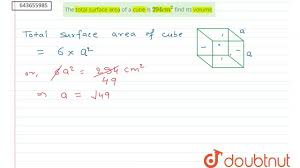 643655985
The total surface area of a cube is 294cm² find its volume
Total surface area of cube
= 6 × a²
a
a
or, 6a² = 294 cm²
49
⇒ a = √49
doubtnut